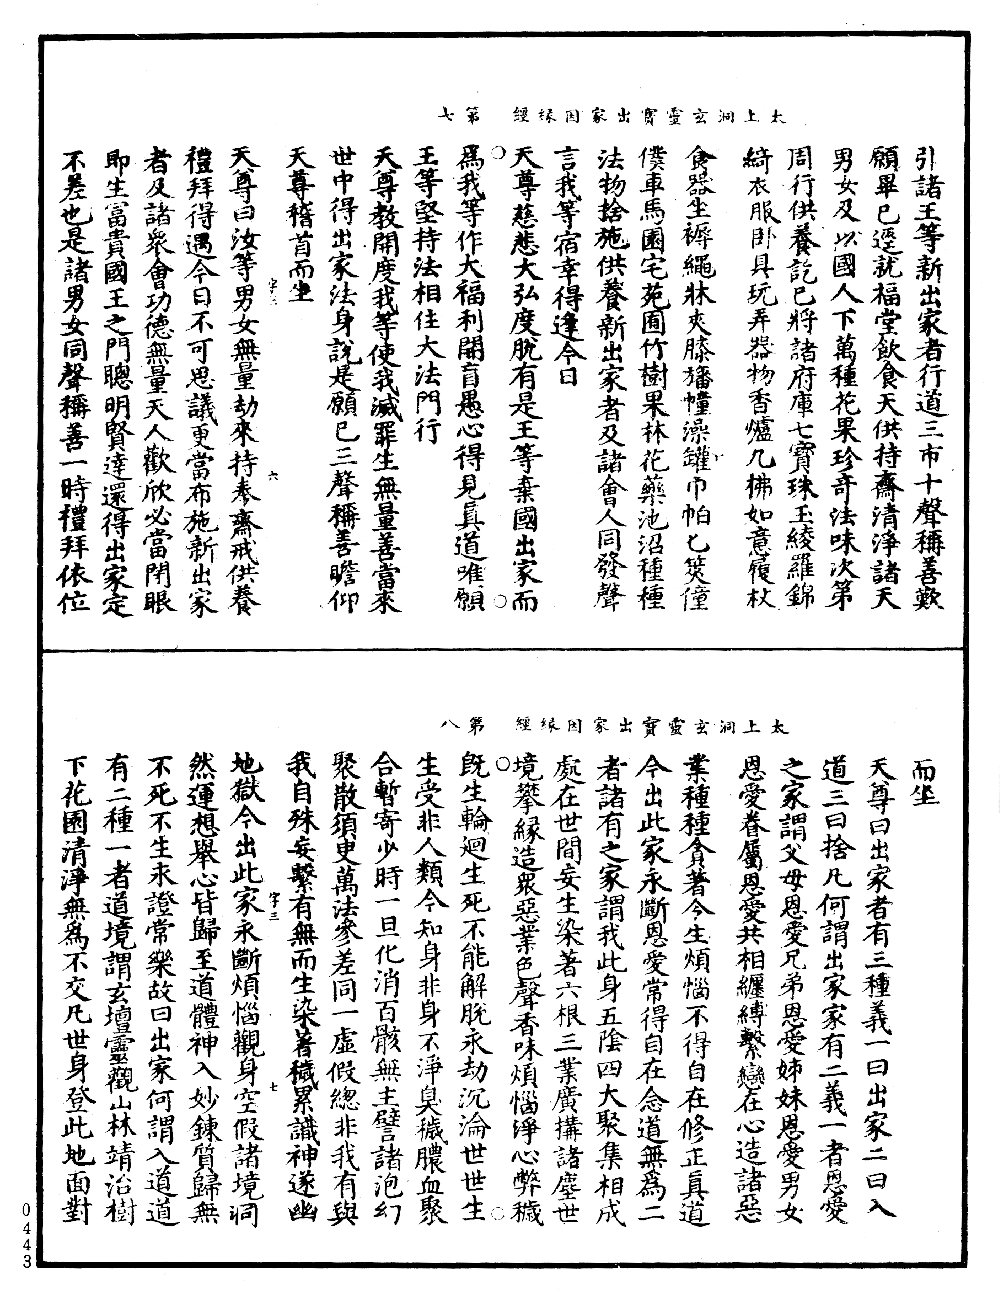 太上洞玄靈寶出家因緣經　第七
引諸王等新出家者行道三帀十聲稱善歎
願畢已遷就福堂飲食天供持齋清淨諸天
男女及以國人下萬種花果珍奇法味次第
周行供養訖已將諸府庫七寶珠玉綾羅錦
綺衣服卧具玩弄器物香爐几拂如意履杖
食器坐褥繩牀夾膝旛幢澡罐巾帕匕筴僮
僕車馬園宅苑囿竹樹果林花藥池沼種種
法物捨施供養新出家者及諸會人同發聲
言我等宿幸得逢今日
天尊慈悲大弘度脫有是王等棄國出家而
爲我等作大福利開盲愚心得見真道唯願
王等堅持法相住大法門行
天尊教開度我等使我滅罪生無量善當來
世中得出家法身說是願已三聲稱善瞻仰
天尊稽首而坐
天尊曰汝等男女無量劫來持奉齋戒供養
禮拜得遇今日不可思議更當布施新出家
者及諸衆會功德無量天人歡欣必當閉眼
即生富貴國王之門聰明賢達還得出家定
不差也是諸男女同聲稱善一時禮拜依位
字二
六
太上洞玄靈寶出家因緣經　第八
而坐
天尊曰出家者有三種義一曰出家二曰入
道三曰捨凡何謂出家家有二義一者恩愛
之家謂父母恩愛兄弟恩愛姊妹恩愛男女
恩愛眷屬恩愛共相纏縛繫戀在心造諸惡
業種種貪著今生煩惱不得自在修正真道
今出此家永斷恩愛常得自在念道無爲二
者諸有之家謂我此身五陰四大聚集相成
處在世間妄生染著六根三業廣搆諸塵世
境攀緣造衆惡業色聲香味煩惱淨心弊穢
旣生輪迴生死不能解脫永劫沉淪世世生
生受非人類今知身非身不淨臭穢膿血聚
合暫寄少時一旦化消百骸無主譬諸泡幻
聚散須臾萬法參差同一虛假總非我有與
我自殊妄繫有無而生染著穢累識神遂幽
地獄今出此家永斷煩惱觀身空假諸境洞
然運想舉心皆歸至道體神入妙鍊質歸無
不死不生永證常樂故曰出家何謂入道道
有二種一者道境謂玄壇靈觀山林靖治樹
下花園清淨無爲不交凡世身登此地面對
字三
七
0443